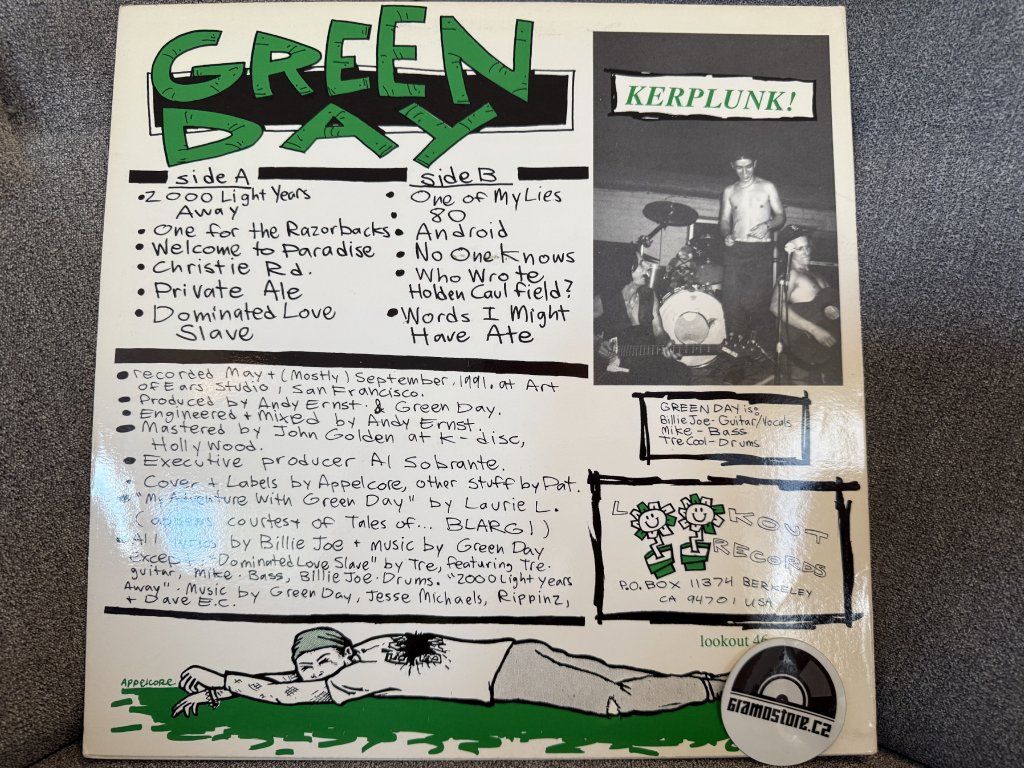 GREEN
DAY
KERPLUNK!
side A
• 2000 Light Years
Away
• One for the Razorbacks
• Welcome to Paradise
• Christie Rd.
• Private Ale
• Dominated Love
Slave
side B
• One of My Lies
• 80
• Android
• No One Knows
• Who Wrote
Holden Caulfield?
• Words I Might
Have Ate
• recorded May + (Mostly) September. 1991. at Art
of Ears Studio, San Francisco.
• Produced by Andy Ernst. & Green Day.
• Engineered + Mixed by Andy Ernst.
• Mastered by John Golden at K-disc,
Hollywood.
• Executive producer Al Sobrante.
• Cover + Labels by Appelcore, other stuff by Pat.
• "My Adventure With Green Day" by Laurie L.
(appears courtesy of Tales of... BLARG!)
• All lyrics by Billie Joe + music by Green Day
except "Dominated Love Slave" by Tre, featuring Tre.
guitar, Mike. Bass, Billie Joe. Drums. "2000 Light years
Away". Music by Green Day, Jesse Michaels, Rippinz,
+ Dave E.C.
GREEN DAY is:
Billie Joe - Guitar/Vocals
Mike - Bass
Tre Cool - Drums
LOOKOUT
RECORDS
P.O. BOX 11374 BERKELEY
CA 94701 USA
lookout 46
APPELCORE
Gramostore.cz